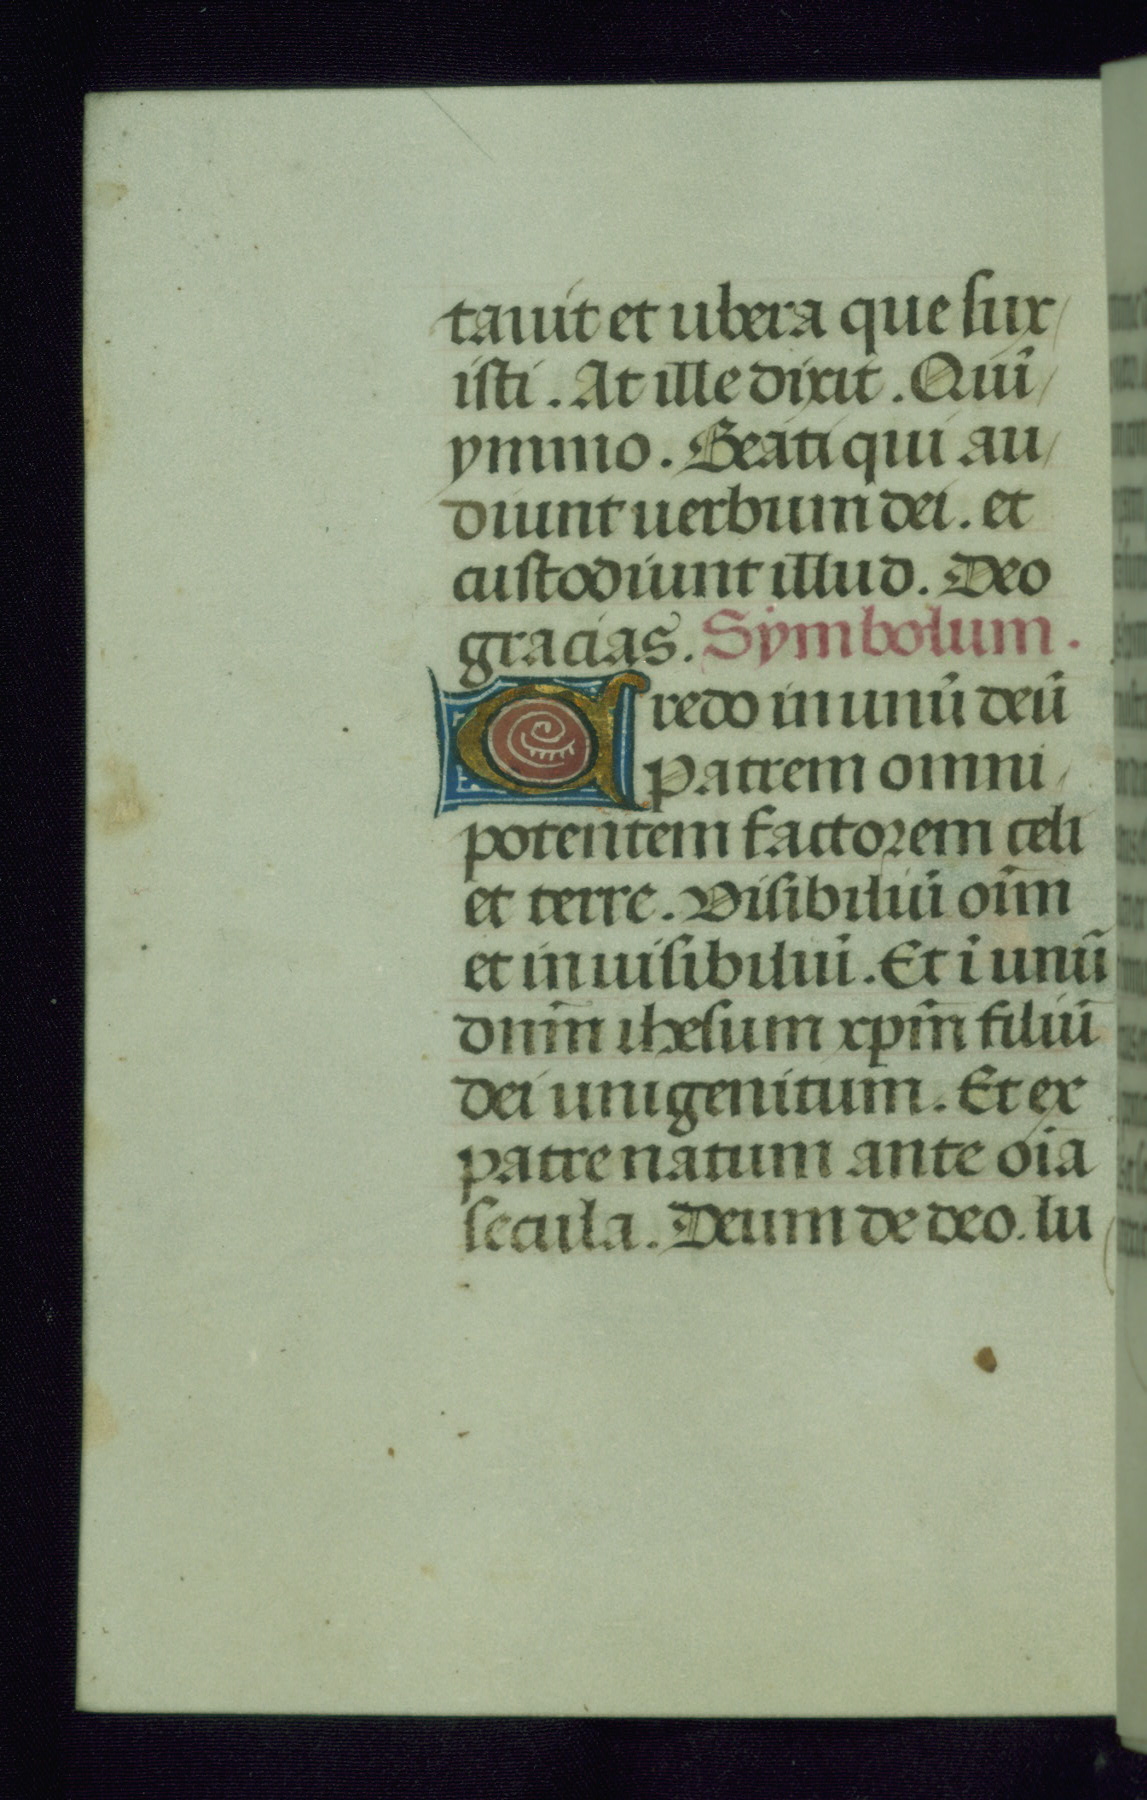 tauit et ubera que sux/
isti. At ille dixit. Quĩ/
ymmo. Beati qui au/
diunt uerbum dei. et
custodiunt illud. Deo
gracias. Symbolum.
Credo in unũ deũ
Patrem omni/
potentem factorem celi
et terre. Visibiliũ oĩm
et inuisibiliũ. Et ĩ unũ
dnm̃ ihesum xpm̃ filiũ
dei unigenitum. Et ex
patre natum ante oĩa
secula. Deum de deo. lu